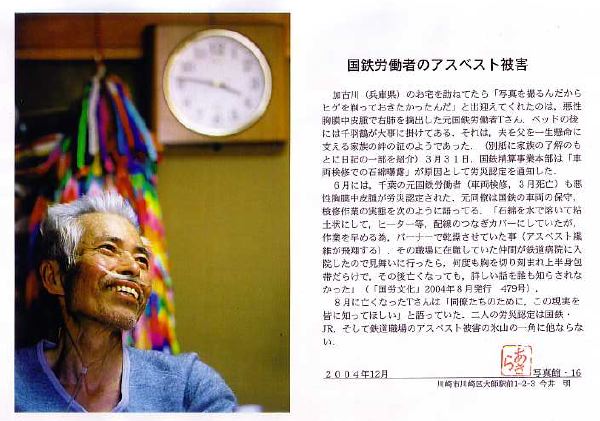 国鉄労働者のアスベスト被害
加古川（兵庫県）のお宅を訪ねてたら「写真を撮るんだから
ヒゲを剃っておきたかったんだ」と出迎えてくれたのは，悪性
胸膜中皮腫で右肺を摘出した元国鉄労働者Tさん．ベッドの後
には千羽鶴が大事に掛けてある．それは，夫を父を一生懸命に
支える家族の絆の証のようであった．（別紙に家族の了解のも
とに日記の一部を紹介）３月３１日．国鉄精算事業本部は「車
両検修での石綿曝露」が原因として労災認定を通知した．
６月には，千葉の元国鉄労働者（車両検修，３月死亡）も悪
性胸膜中皮腫が労災認定された．元同僚は国鉄の車両の保守，
検修作業の実態を次のように語ってる．「石綿を水で溶いて粘
土状にして，ヒーター等，配線のつなぎカバーにしていたが，
作業を早める為，バーナーで乾燥させていた事（アスベスト繊
維が飛翔する）．その職場に在職していた仲間が鉄道病院に入
院したので見舞いに行ったら，何度も胸を切り刻まれ上半身包
帯だらけで，その後亡くなっても，詳しい話を誰も知らされな
かった」（「国労文化」2004年８月発行　479号）．
８月に亡くなったTさんは「同僚たちのために，この現実を
皆に知ってほしい」と語っていた．二人の労災認定は国鉄・
JR，そして鉄道職場のアスベスト被害の氷山の一角に他ならな
い．
２００４年12月
あさら
写真館・16
川崎市川崎区大師駅前1-2-3 今井　明